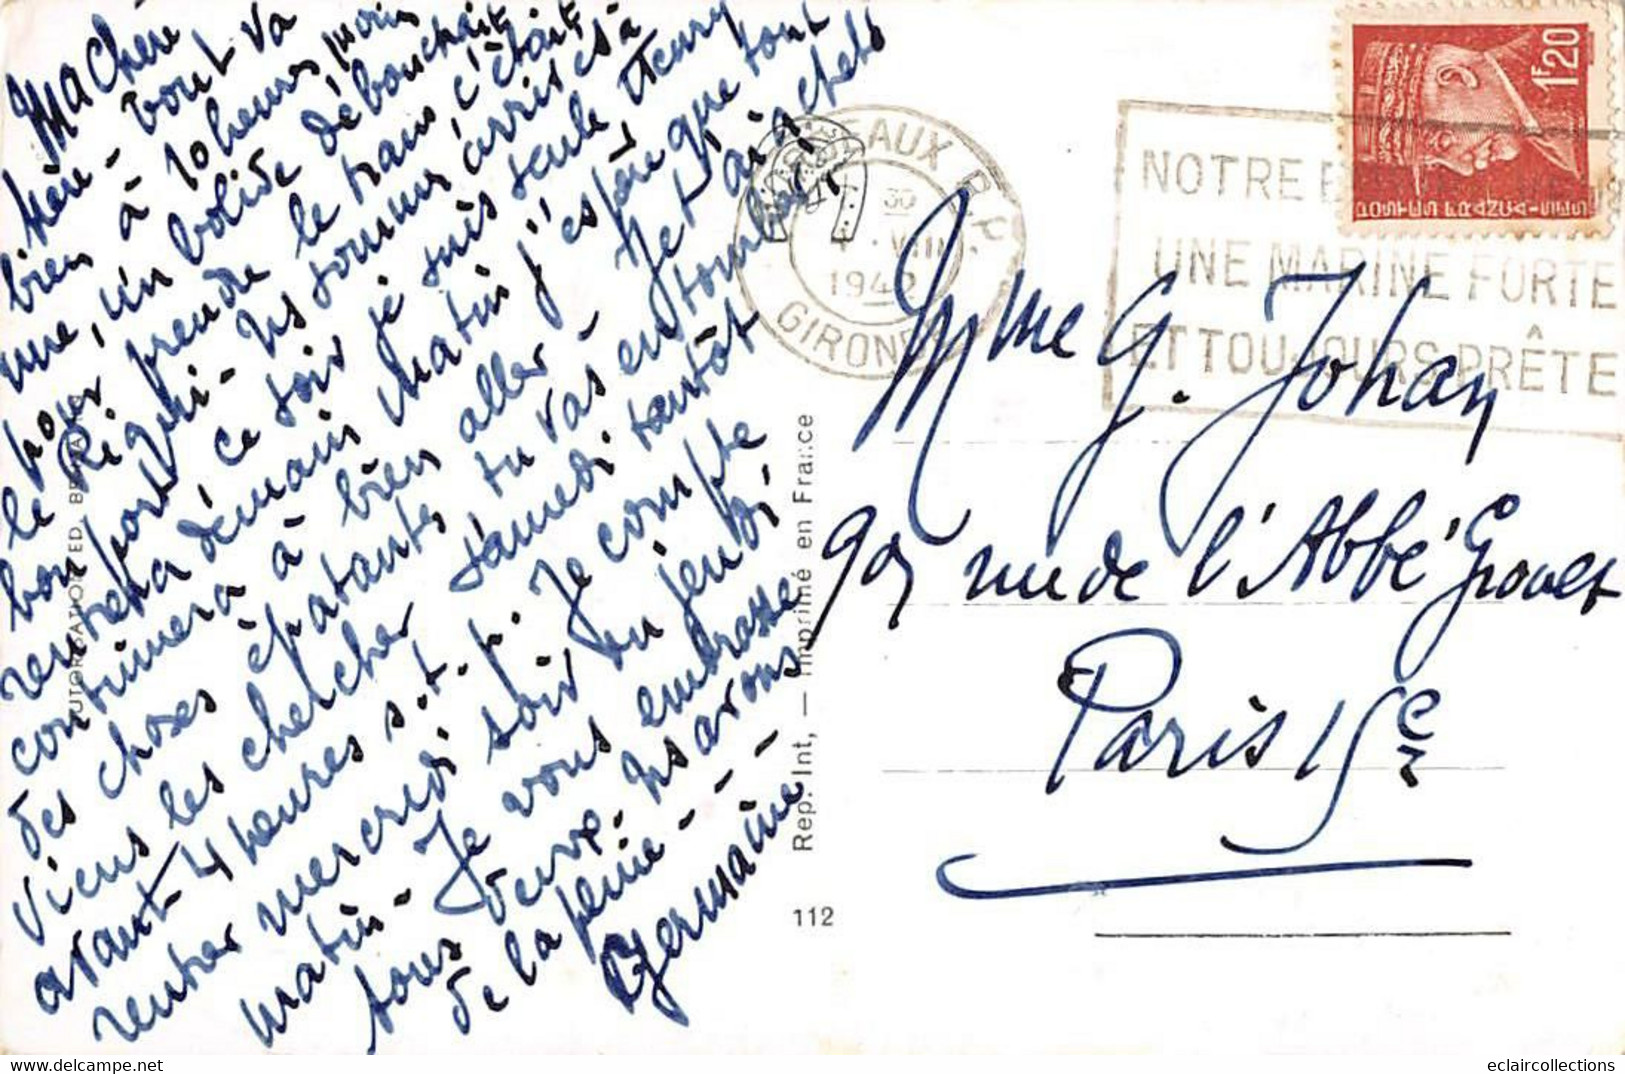 Ma Chère
Mère - tout va
bien à 10 heures moins
une, un bolide débouchait
pour prendre le train, c'était
le Riqui - Ns sommes arrivés à
bon port, ce soir je suis seule, Henry
rentrera demain matin j'espère que tout
continuera à bien aller - Je t'ai acheté
des choses épatantes tu vas en tomber
Viens les chercher samedi tantôt
avant 4 heures s. t. p. Je compte
rentrer mercredi soir ou jeudi
matin - Je vous embrasse
tous deux. Ns avons
de la peine - - -
Germaine
AUTORISATION ED. B
Rep. Int, — Imprimé en France
112
EAUX R.P.
30
VIII
1942
GIRONDE
NOTRE E
UNE MARINE FORTE
ET TOUJOURS PRÊTE
1F20
POSTES FRANÇAISES
Mme G. Johan
90, rue de l'Abbé Groult
Paris 15e
eclaircollections